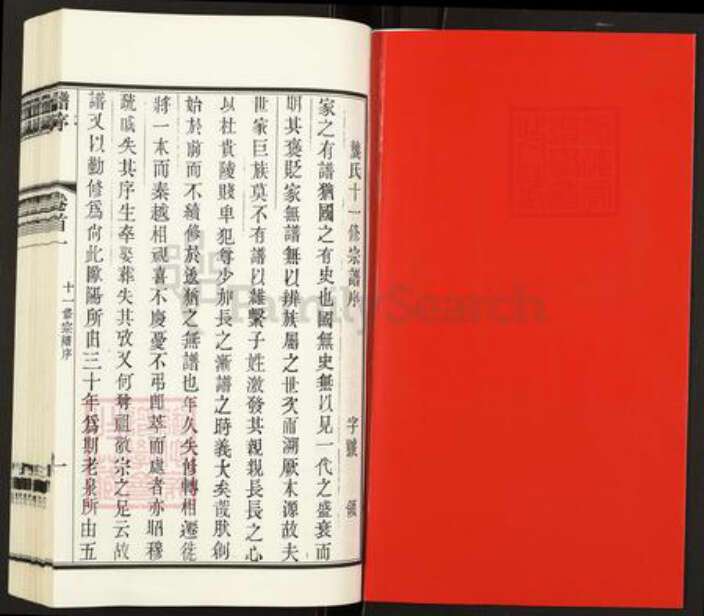 龔氏十一修宗譜序 字號 領
家之有譜猶國之有史也國無史無以見一代之盛衰而
明其褒貶家無譜無以辨族屬之世次而溯厥本源故夫
世家巨族莫不有譜以維繫子姓激發其親親長長之心
以杜貴陵賤卑犯尊少加長之漸譜之時義大矣哉肰創
始於前而不續修於後猶之無譜也年久失修轉相遷徙
將一本而秦越相視喜不慶憂不弔即萃而處者亦昭穆
疏戚失其序生卒娶葬失其攷又何尊祖敬宗之足云故
譜又以勤修為尚此歐陽所由三十年為期老泉所由五
譜序 卷首一 十一修宗譜序 一
FamilySearch